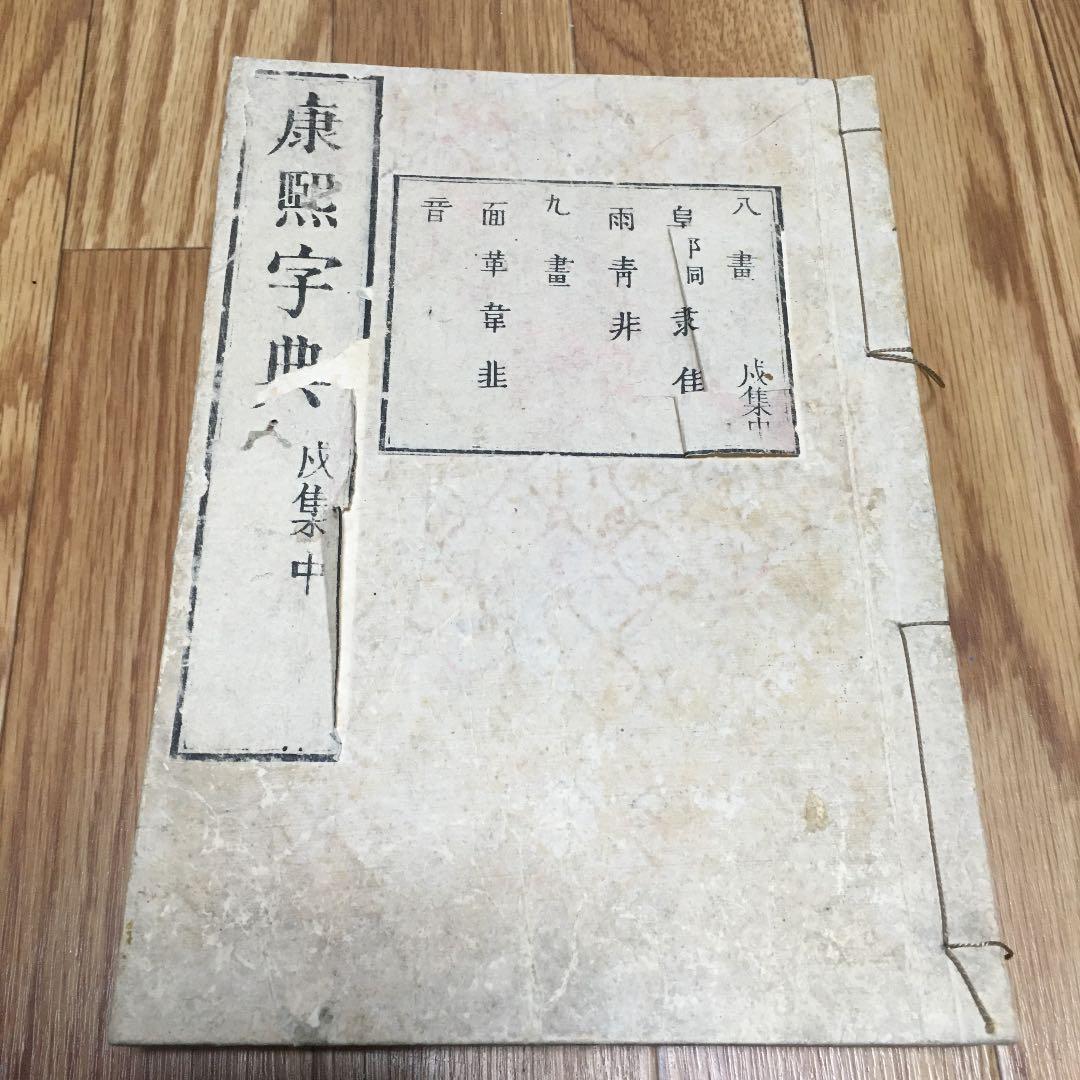 康熙字典
戌集中
八畫
戌集中
阜阝同隶隹
雨青非
九畫
面革韋韭
音